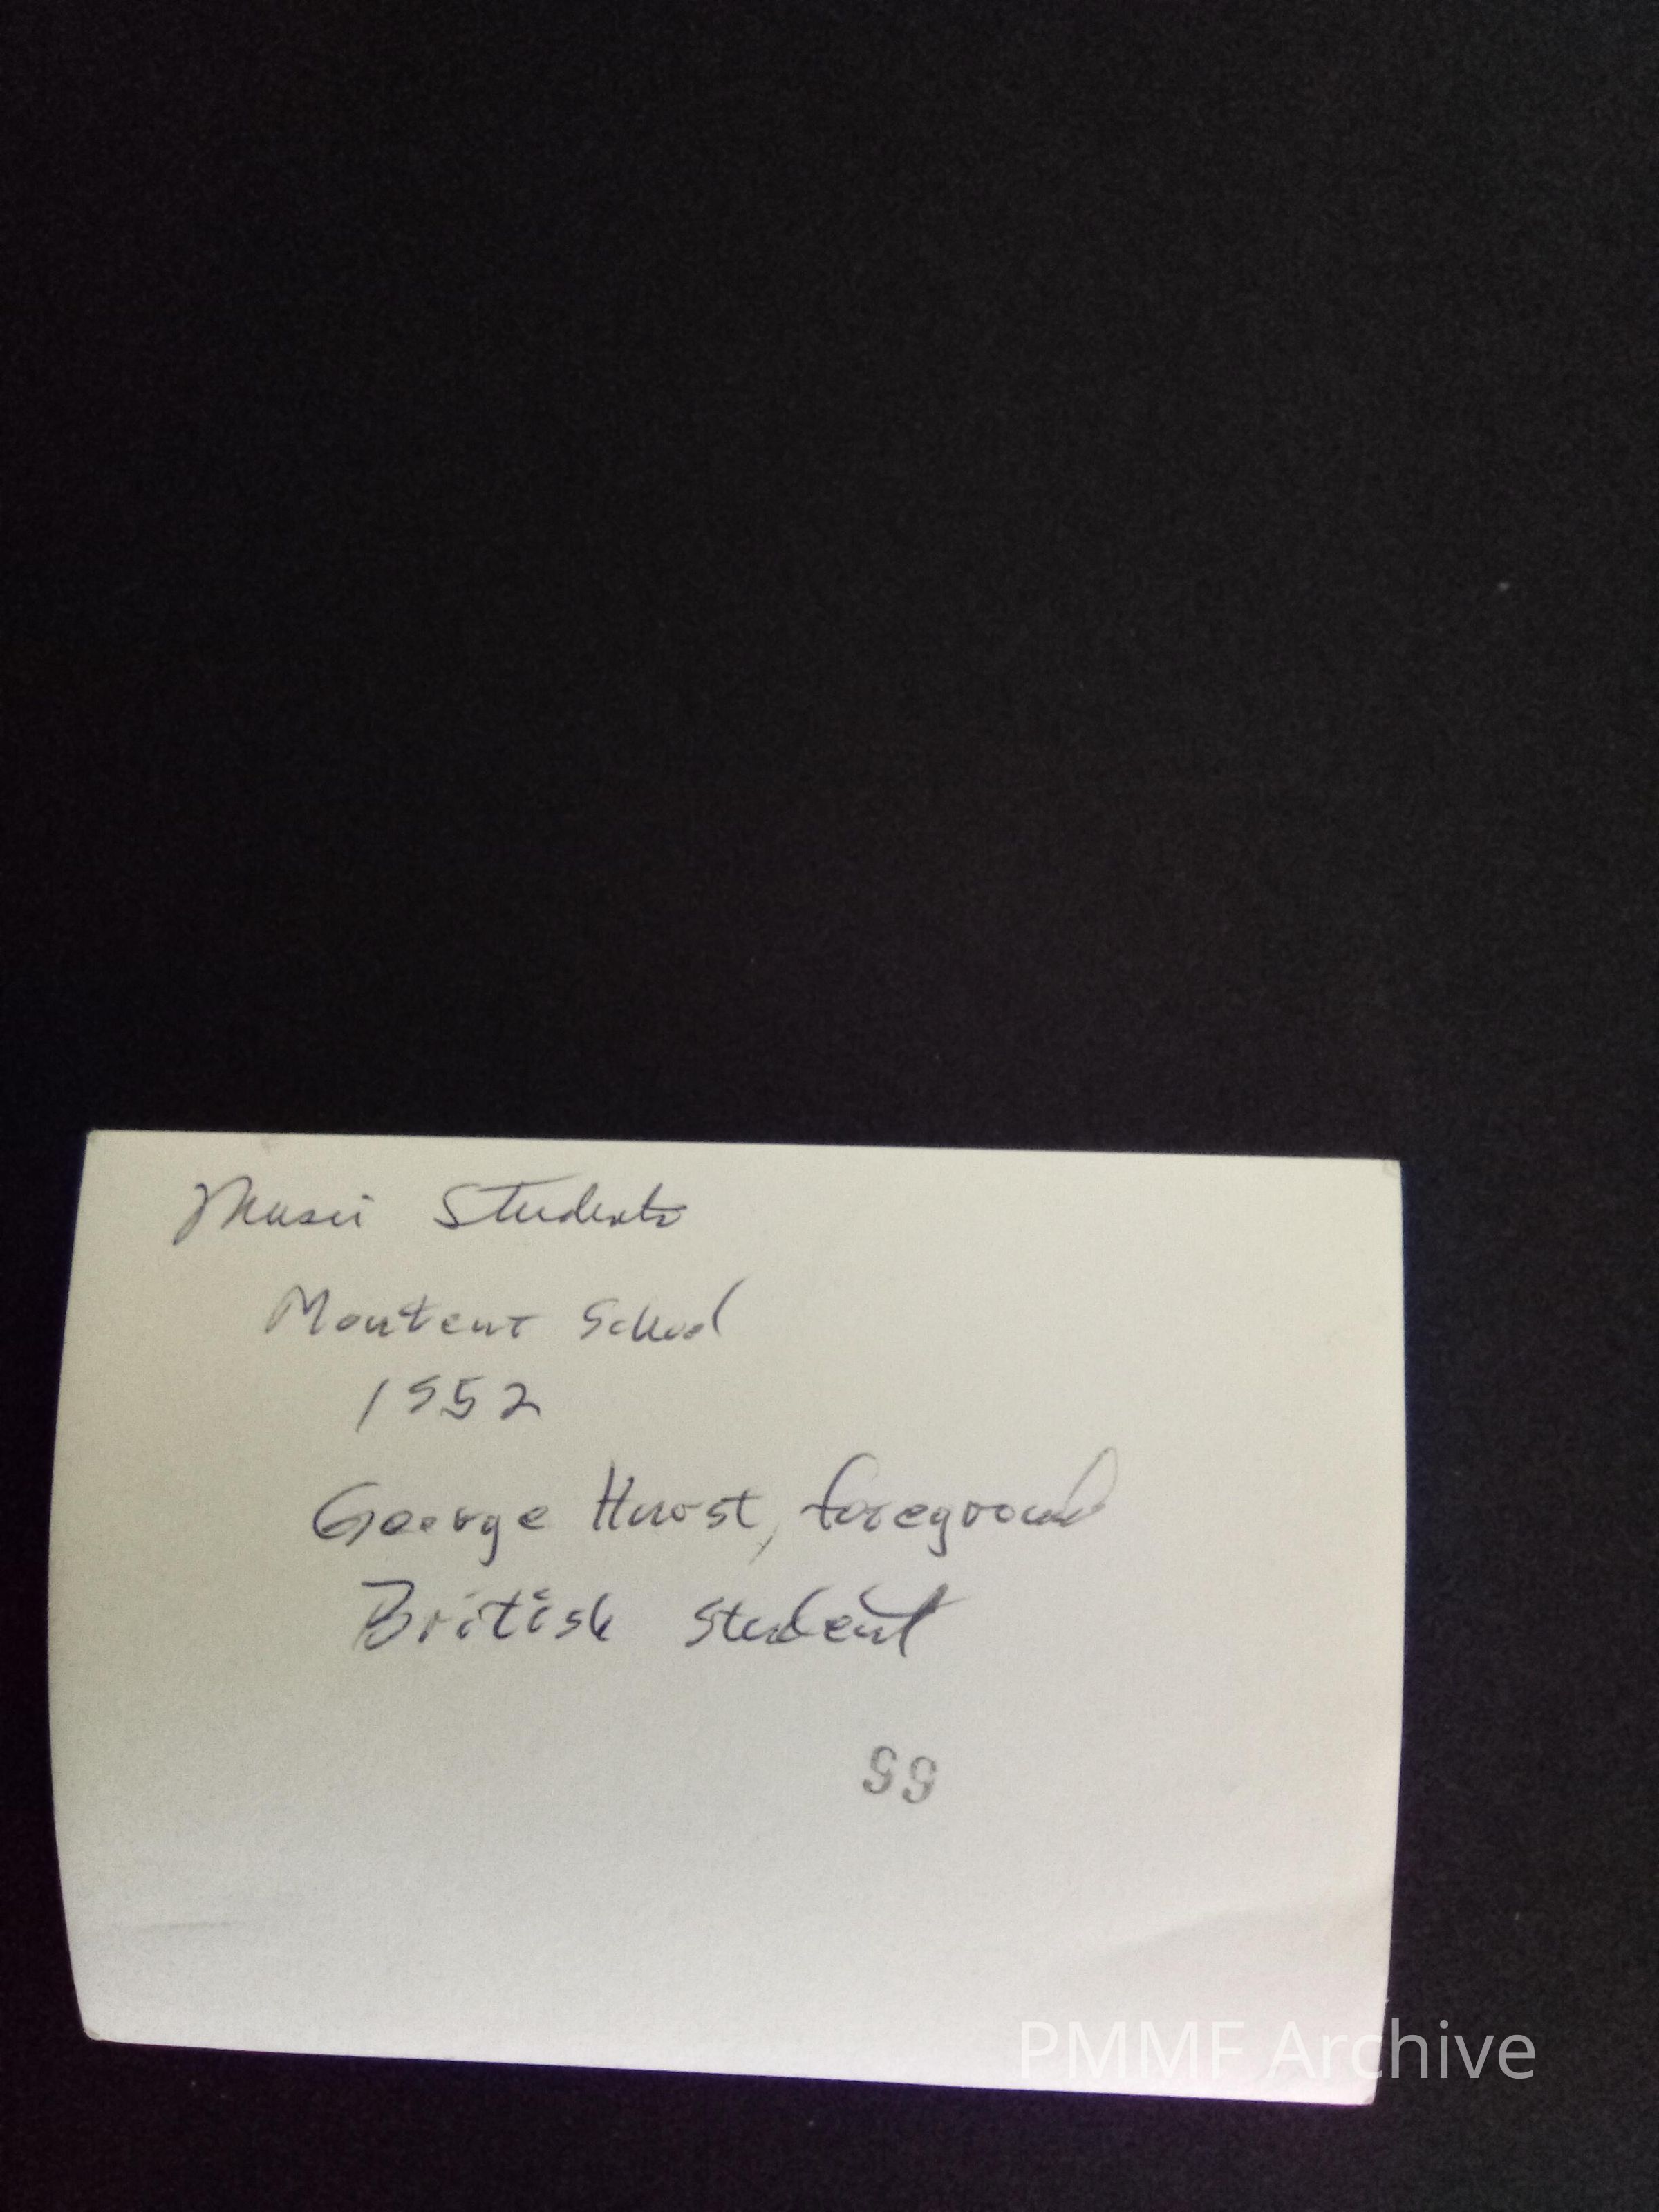 Music Students
Monteux School
1952
George Hurst, foreground
British student
55
PMMF Archive